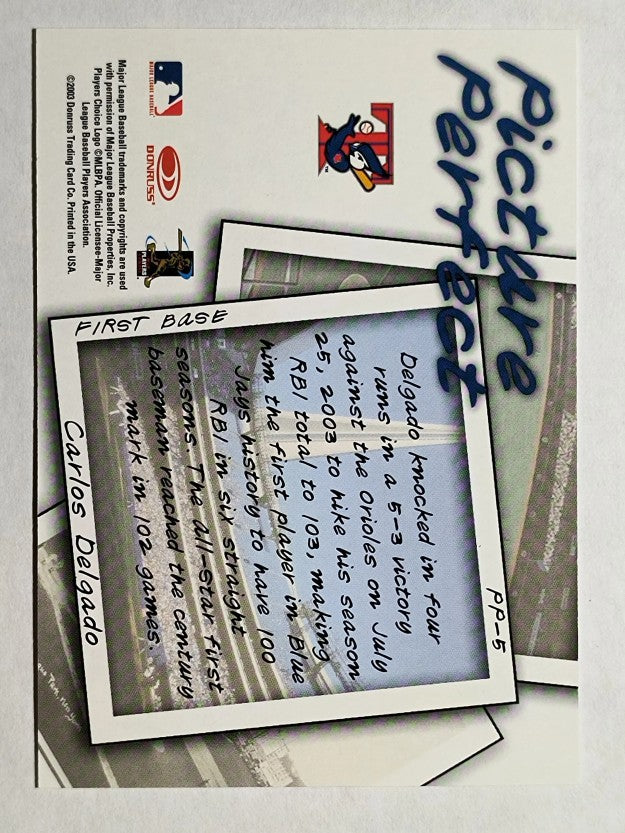 Picture
Perfect
PP-5
Delgado knocked in four
runs in a 5-3 victory
against the Orioles on July
25, 2003 to hike his season
RBI total to 103, making
him the first player in Blue
Jays history to have 100
RBI in six straight
seasons. The all-star first
baseman reached the century
mark in 102 games.
FIRST BASE
Carlos Delgado
MAJOR LEAGUE BASEBALL
DONRUSS
PLAYERS
Major League Baseball trademarks and copyrights are used
with permission of Major League Baseball Properties, Inc.
Players Choice Logo ©MLBPA. Official Licensee-Major
League Baseball Players Association.
©2003 Donruss Trading Card Co. Printed in the USA.